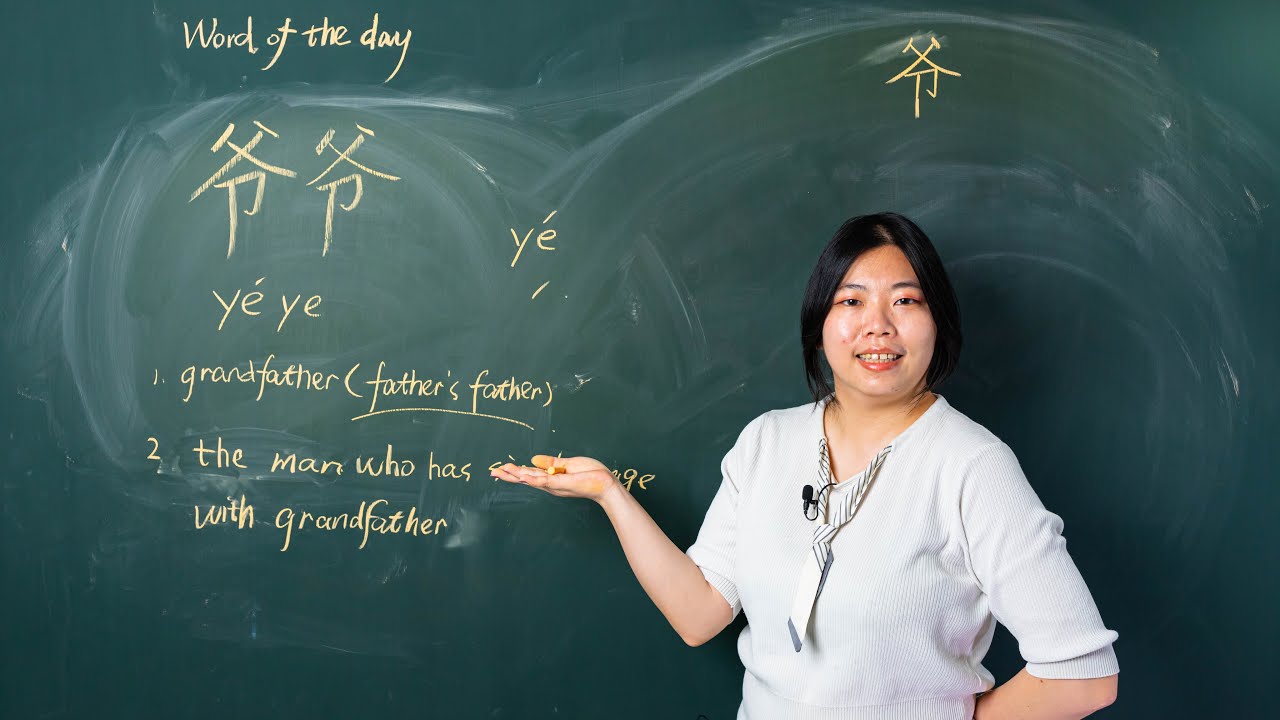 Word of the day
爷
爷爷
yé
yéye
1. grandfather (father's father)
2 the man who has age
with grandfather